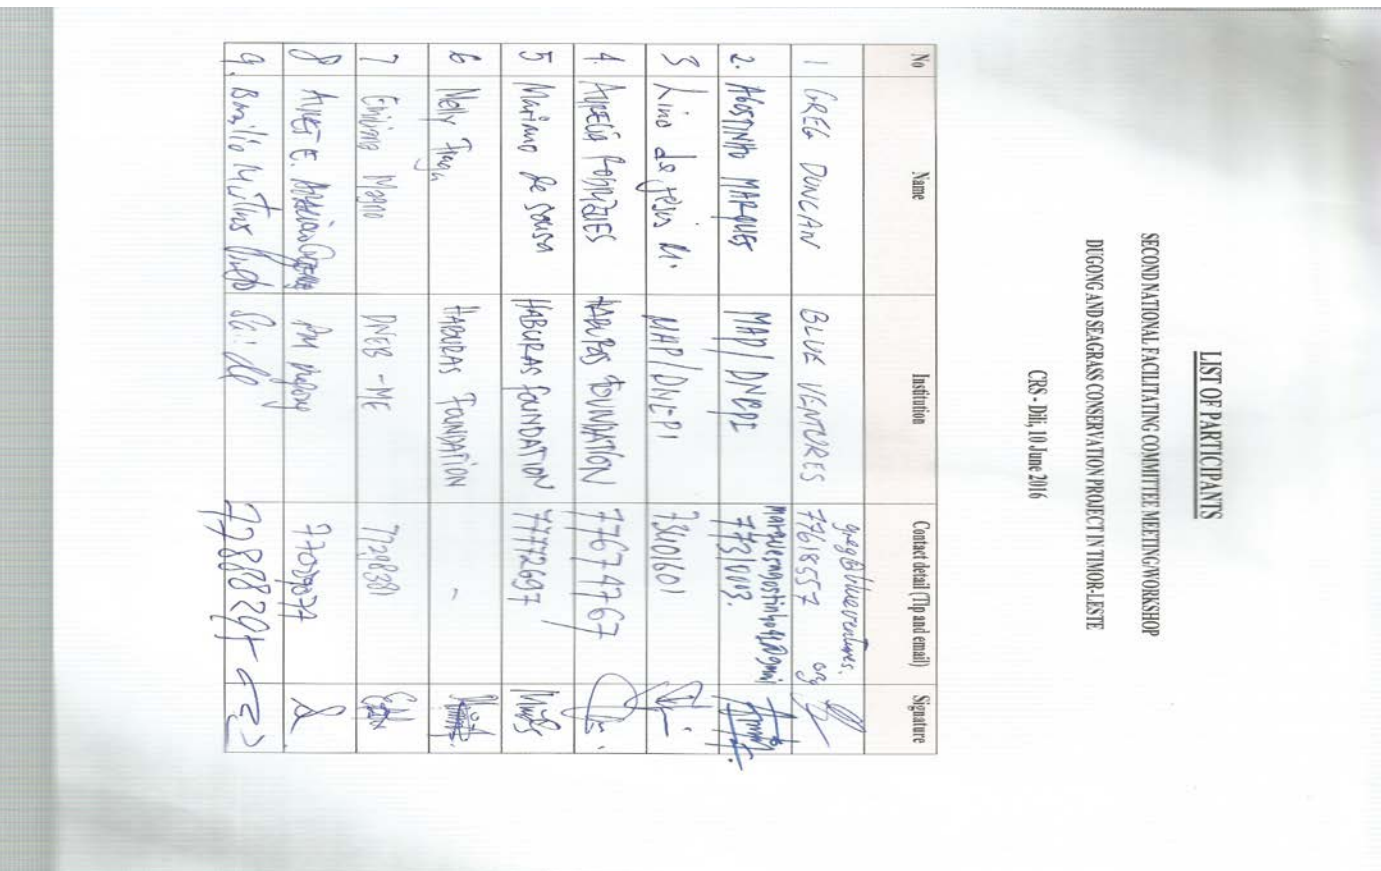 LIST OF PARTICIPANTS
SECOND NATIONAL FACILITATING COMMITTEE MEETING/WORKSHOP
DUGONG AND SEAGRASS CONSERVATION PROJECT IN TIMOR-LESTE
CRS - Dili, 10 June 2016
No Name Institution Contact detail (Tlp and email) Signature
1 GREG DUNCAN BLUE VENTURES greg@blueventures.org 77618557
2. AGOSTINHO MARQUES MAP/DNGPI 77310003.
3 Lino de jesus M. MAP/DNEPI 73401601
4. AURELIA RODRIGUES HABURAS FOUNDATION 77674767
5 Marino de sousa HABURAS FOUNDATION 77772697
6 Nelly HABURAS FOUNDATION -
7 Magno DNEB - ME 77298381
8 E.
9. 77288829